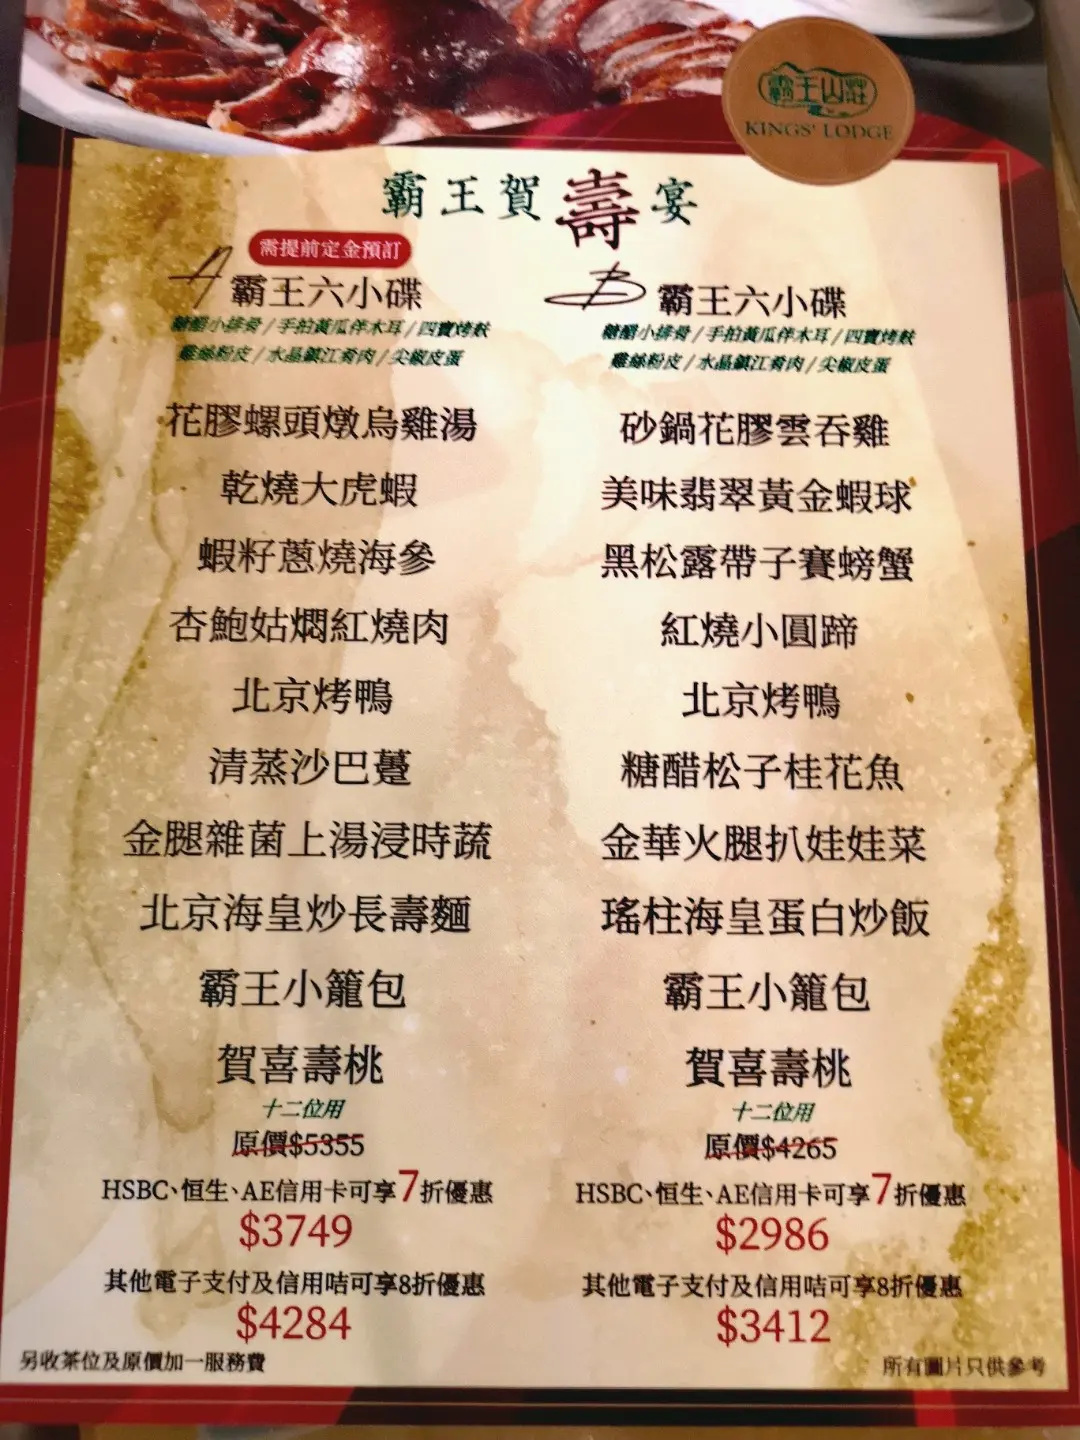 霸王山莊
KINGS' LODGE
霸王賀壽宴
需提前定金預訂
A
霸王六小碟
糖醋小排骨/手拍黃瓜伴木耳/四寶烤麩
雞絲粉皮/水晶鎮江肴肉/尖椒皮蛋
花膠螺頭燉烏雞湯
乾燒大虎蝦
蝦籽蔥燒海參
杏鮑菇燜紅燒肉
北京烤鴨
清蒸沙巴躉
金腿雜菌上湯浸時蔬
北京海皇炒長壽麵
霸王小籠包
賀喜壽桃
十二位用
原價$5355
HSBC、恒生、AE信用卡可享7折優惠
$3749
其他電子支付及信用咭可享8折優惠
$4284
B
霸王六小碟
糖醋小排骨/手拍黃瓜伴木耳/四寶烤麩
雞絲粉皮/水晶鎮江肴肉/尖椒皮蛋
砂鍋花膠雲吞雞
美味翡翠黃金蝦球
黑松露帶子賽螃蟹
紅燒小圓蹄
北京烤鴨
糖醋松子桂花魚
金華火腿扒娃娃菜
瑤柱海皇蛋白炒飯
霸王小籠包
賀喜壽桃
十二位用
原價$4265
HSBC、恒生、AE信用卡可享7折優惠
$2986
其他電子支付及信用咭可享8折優惠
$3412
另收茶位及原價加一服務費
所有圖片只供參考